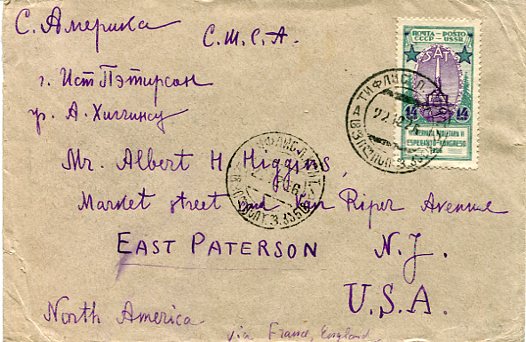 С. Америка
С. Ш. С. А.
г. Ист Пэтирсон
гр. А. Хиггинсу
Mr. Albert H. Higgins,
Market street and Van Riper Avenue
EAST PATERSON N. J.
U. S. A.
North America
via France, England
ПОЧТА POŜTO
СССР USSR
14 14
ESPERANTO-KONGRESO
1926
ТИФЛИС